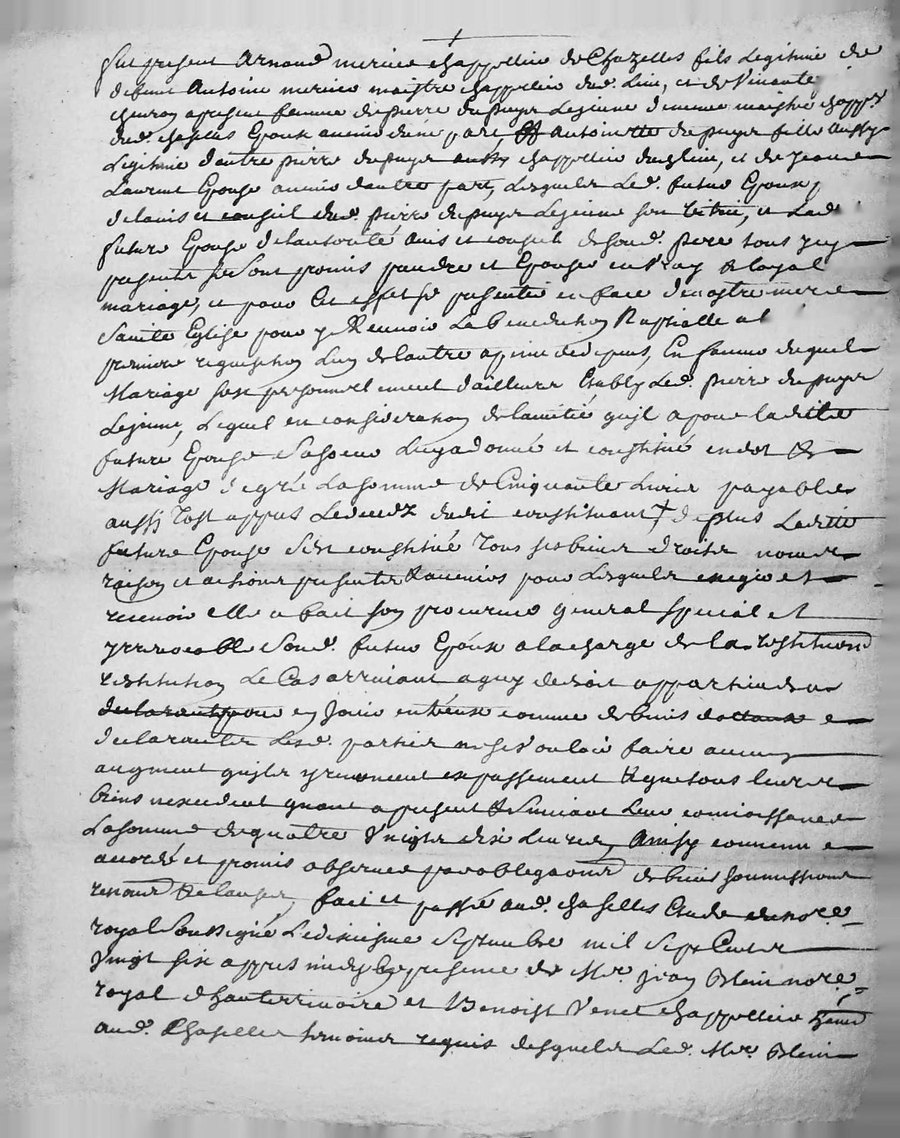 fut present Arnaud mercier chappellier de Chazelles fils Legitime de
deffunt Antoine mercier maistre chappellier dud. Lieu, et de
apresent femme de pierre dupuys Lejeune demeure maistre chappr
dud. chaselles Epoux avenir dune part, Antoinette dupuys fille aussy
Legitime dautre pierre dupuys aussy chappellier dud lieu, et de jeanne
Laurent Epouse avenir dautre part, Lesquels Led. futur Epoux,
delavis et conseil dud. pierre dupuys Lejeune son et Lad
future Epouse delautorité avis et conseil de sond. pere tous jcy
presents se sont promis prendre et Epouser en vray & loyal
mariage, et pour Cet effet se presenter en face de nostre mere
Sainte Eglise pour y Recevoir La benediction Nuptialle a la
premiere requisition Lun de lautre apeine de depens, En faveur duquel
Mariage sest personnellement dailleurs Etably Led. pierre dupuys
Lejeune, Lequel en consideration de lamitié quil a pour ladite
future Epouse Sa soeur Luy a donné et constitué en dot &
Mariage degré La somme de Cinquante Livres payables
aussy tost appres Ledeces dudit constituant, de plus Ladite
future Epouse sest constitué tous ses biens droits noms
raisons et actions presents & avenirs pour Lesquels exiger et
recevoir elle a fait son procureur general special et
yrrevocable Sond. futur Epoux ala charge de la restitution
restitution Le Cas arrivant a quy de droit appartiendra
en jouir comme de biens dotaux
declarants Lesd. parties ne se vouloir faire aucun
augment quils y renoncent expressement & que tous leurs
biens nexcedent quant apresent & suivant Leur connoissance
La somme de quatre vingts dix Livres, Ainsy convenu
accordé et promis observer par obligaons de biens soumissions
renons & clauses, fait et passé aud. chaselles Etude du nore
royal Soussigné Ledixiesme Septembre mil Sept Cents
vingt six appres midy en presence de Mr. jean Blein nore
royal et Benoist Venet chappellier
aud. Chaselles temoins requis desquels Led. Mr. Blein